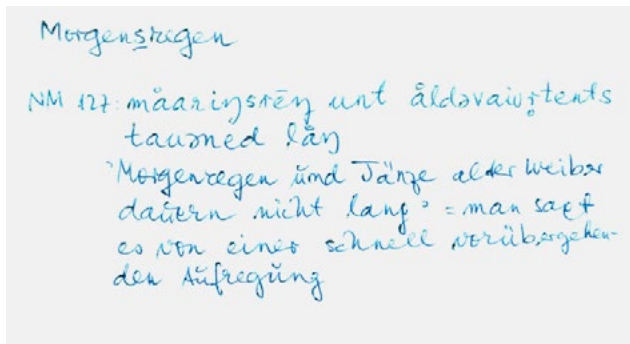 Morgensregen
NM 127: måariŋsrēŋ unt åldəvaiv̥r̥tents
tauəned låŋ
'Morgenregen und Tänze alter Weiber
dauern nicht lang' = man sagt
es von einer schnell vorübergehen-
den Aufregung